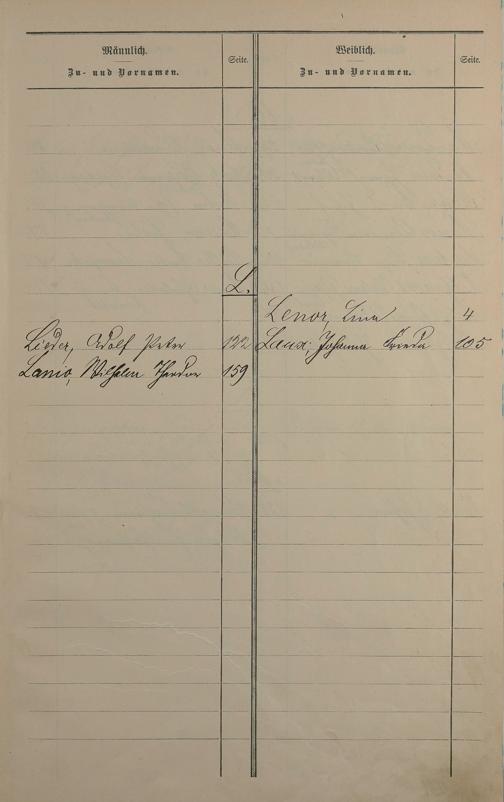 Männlich. Seite. Weiblich. Seite.
Zu- und Vornamen. Zu- und Vornamen.
L.
Lenor, Lina 4
Lieder, Adolf Peter 122 Laux, Johanna Frieda 105
Lanio, Wilhelm Theodor 159